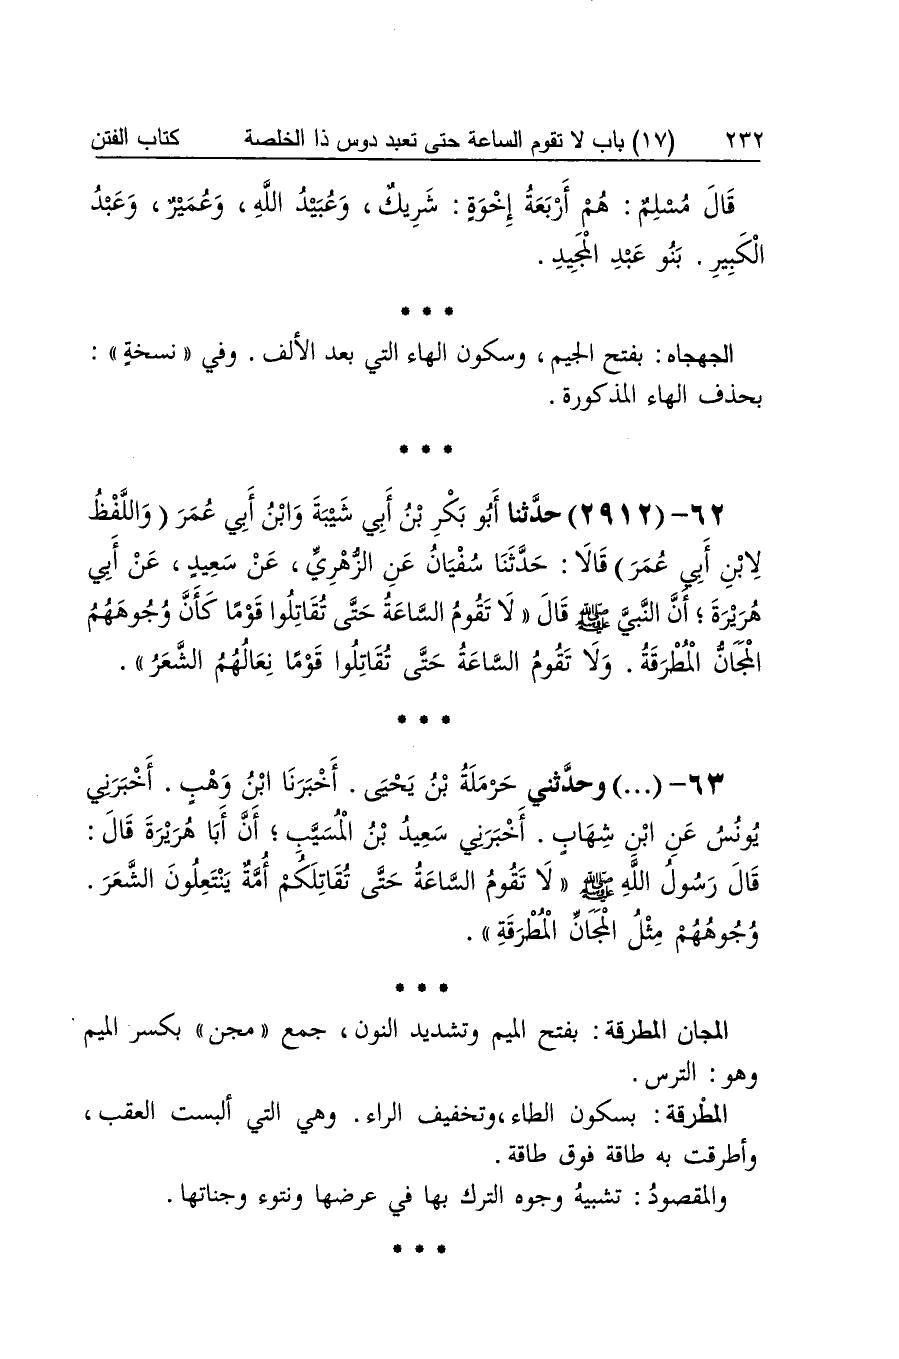 ٢٣٢ (١٧) باب لا تقوم الساعة حتى تعبد دوس ذا الخلصة كتاب الفتن
قَالَ مُسْلِمٌ : هُمْ أَرْبَعَةُ إِخْوَةٍ : شَرِيكٌ ، وَعُبَيْدُ اللَّهِ ، وَعُمَيْرٌ ، وَعَبْدُ
الْكَبِيرِ . بَنُو عَبْدِ الْمَجِيدِ .
* * *
الجهجاه : بفتح الجيم ، وسكون الهاء التي بعد الألف . وفي « نسخةٍ » :
بحذف الهاء المذكورة .
* * *
٦٢- (٢٩١٢) حدَّثنا أَبُو بَكْرِ بْنُ أَبِي شَيْبَةَ وَابْنُ أَبِي عُمَرَ ( وَاللَّفْظُ
لِابْنِ أَبِي عُمَرَ ) قَالَا : حَدَّثَنَا سُفْيَانُ عَنِ الزُّهْرِيِّ ، عَنْ سَعِيدٍ ، عَنْ أَبِي
هُرَيْرَةَ ؛ أَنَّ النَّبِيَّ ﷺ قَالَ « لَا تَقُومُ السَّاعَةُ حَتَّى تُقَاتِلُوا قَوْمًا كَأَنَّ وُجُوهَهُمُ
الْمَجَانُّ الْمُطْرَقَةُ . وَلَا تَقُومُ السَّاعَةُ حَتَّى تُقَاتِلُوا قَوْمًا نِعَالُهُمُ الشَّعَرُ » .
* * *
٦٣- (...) وحدَّثني حَرْمَلَةُ بْنُ يَحْيَى . أَخْبَرَنَا ابْنُ وَهْبٍ . أَخْبَرَنِي
يُونُسُ عَنِ ابْنِ شِهَابٍ . أَخْبَرَنِي سَعِيدُ بْنُ الْمُسَيَّبِ ؛ أَنَّ أَبَا هُرَيْرَةَ قَالَ :
قَالَ رَسُولُ اللَّهِ ﷺ « لَا تَقُومُ السَّاعَةُ حَتَّى تُقَاتِلَكُمْ أُمَّةٌ يَنْتَعِلُونَ الشَّعَرَ .
وُجُوهُهُمْ مِثْلُ الْمَجَانِّ الْمُطْرَقَةِ » .
* * *
المجان المطرقة : بفتح الميم وتشديد النون ، جمع « مجن » بكسر الميم
وهو : الترس .
المطْرقة : بسكون الطاء ،وتخفيف الراء . وهي التي ألبست العقب ،
وأطرقت به طاقة فوق طاقة .
والمقصودُ : تشبيهُ وجوه الترك بها في عرضها ونتوء وجناتها .
* * *